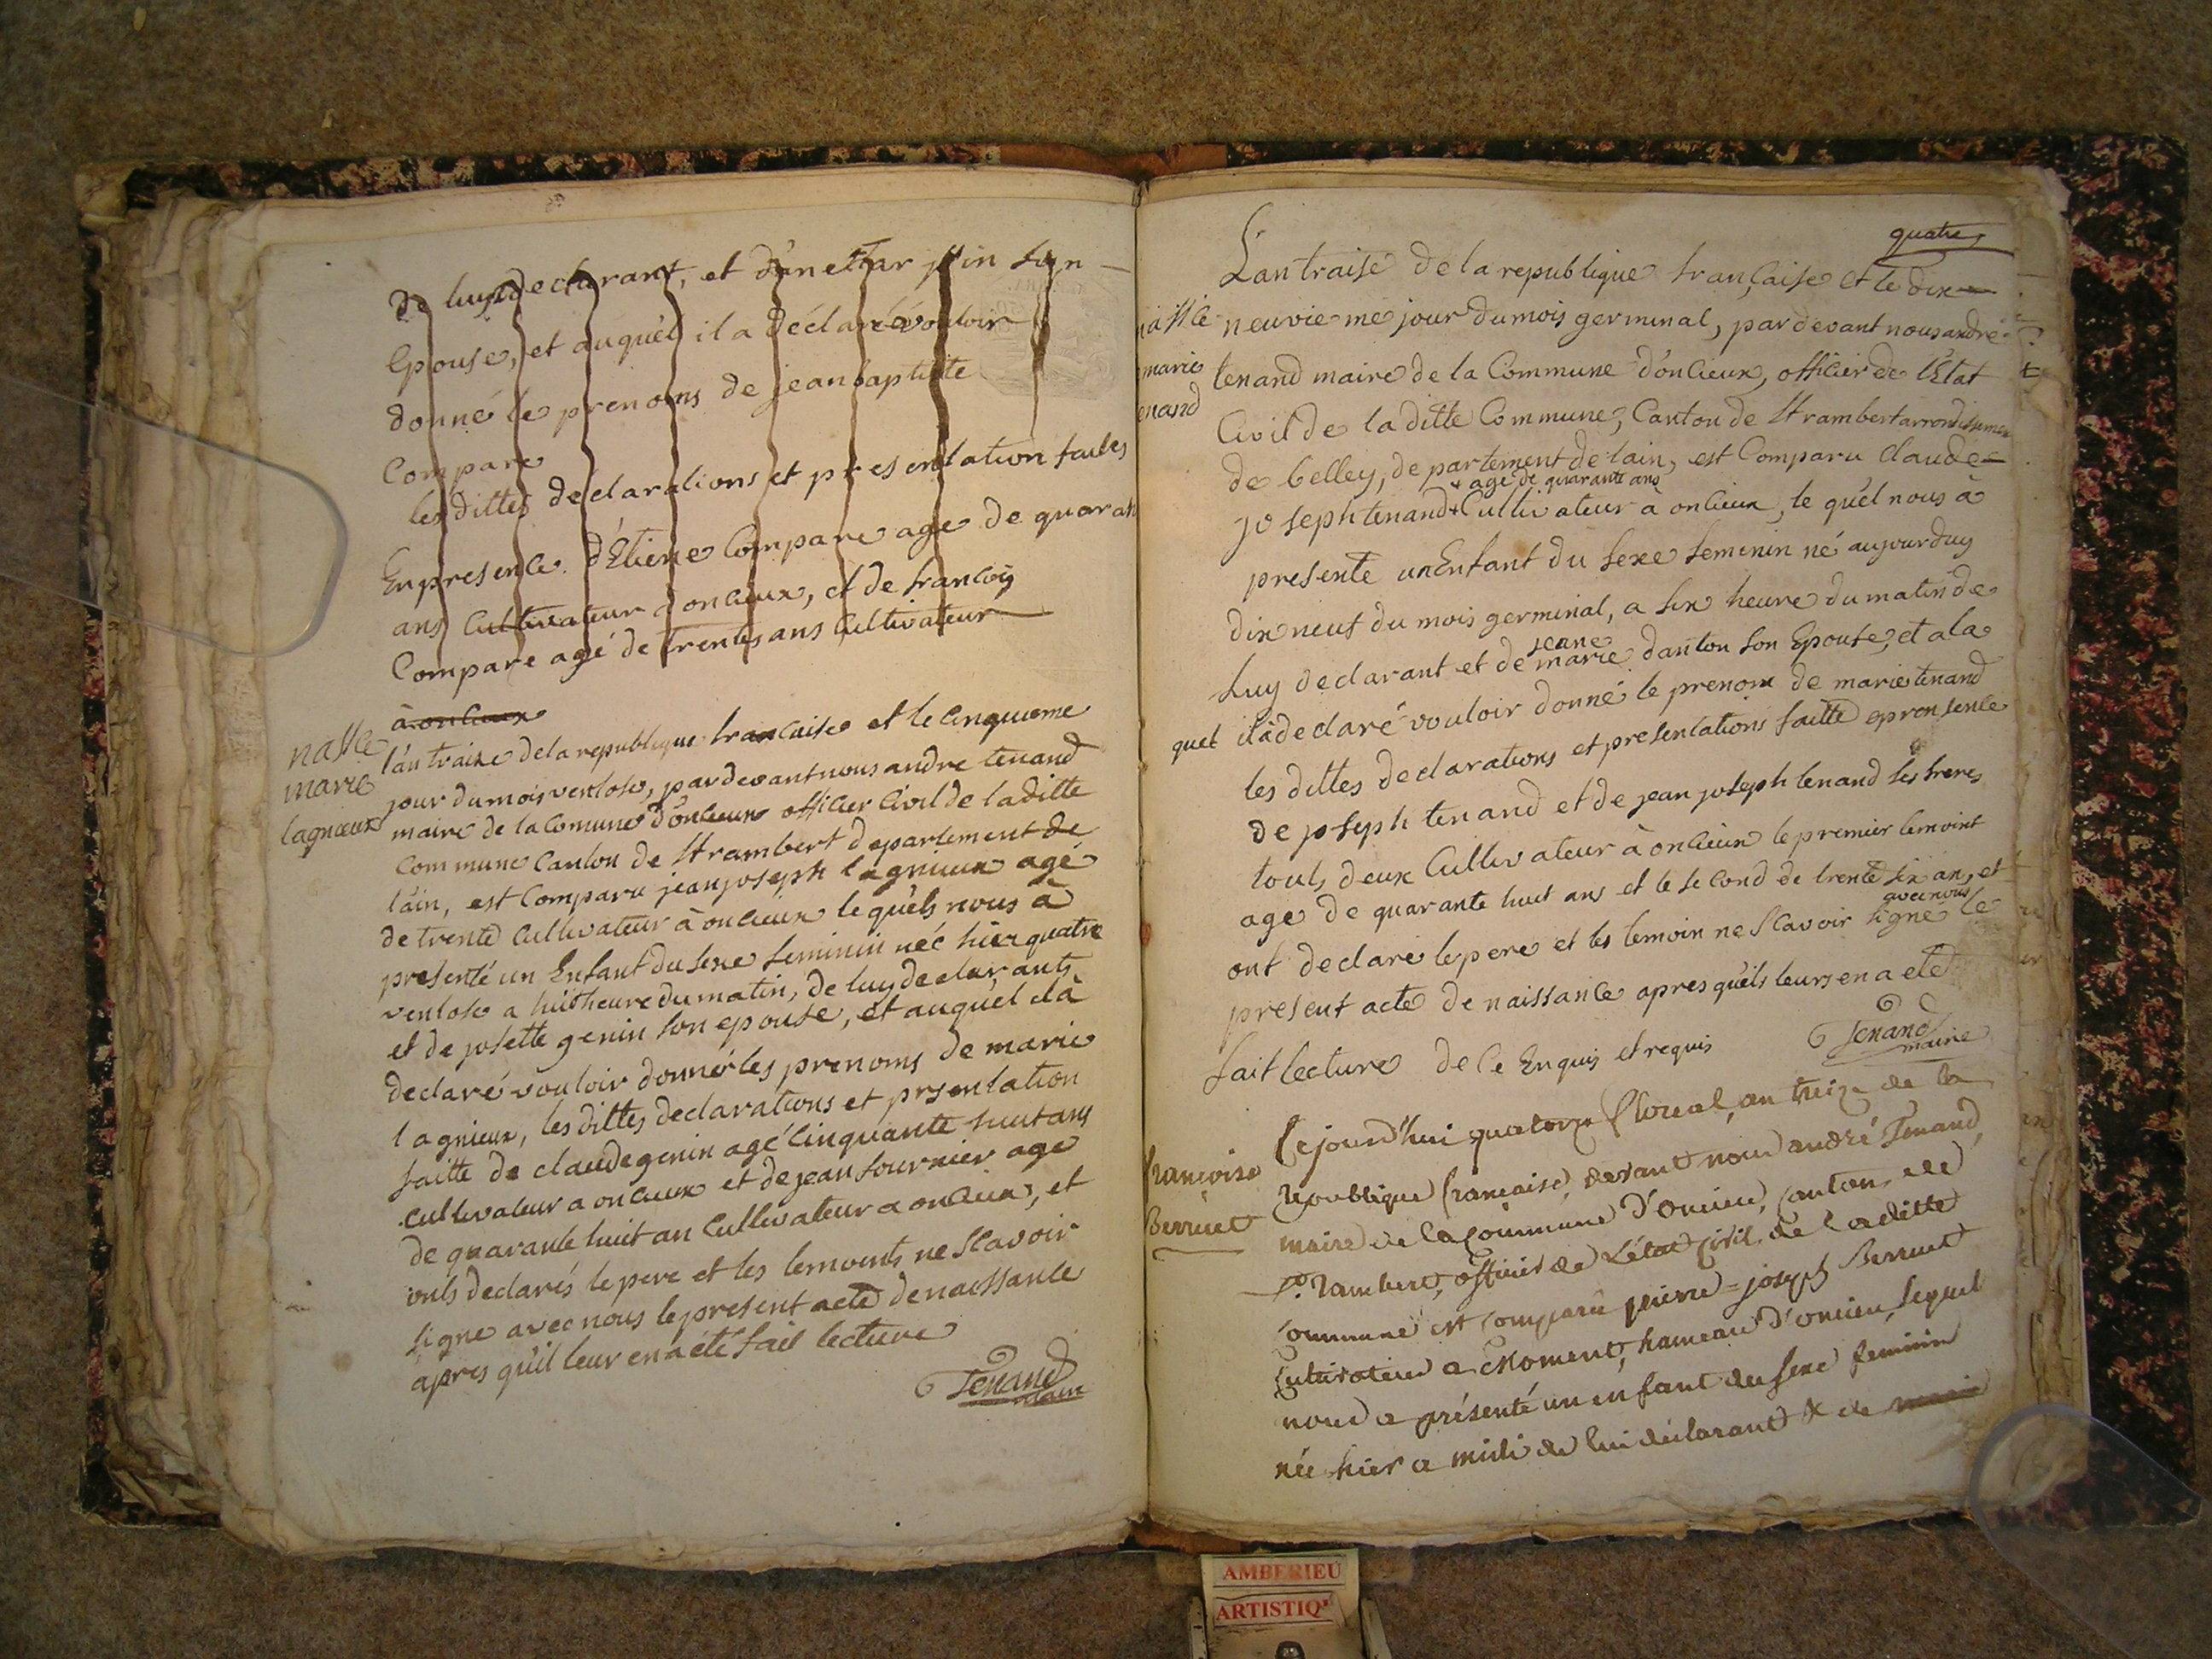 de luy declarant, et d'anethar join son
Epouse, et auquel il a déclaré vouloir
donné le prenoms de jean baptiste
Compare
les dittes declarations et presentation faites
En presence d'Etiene Compare age de quaran
ans Cultivateur a oncieux, et de francois
Compare agé de trentes ans Cultivateur
à oncieux
nasce
marie
lagnieux
l'an traize de la republique francaise et le cinquieme
jour du mois ventose, par devant nous andre tenand
maire de la Comune d'oncieux officier Civil de la ditte
Commune Canton de St rambert departement de
l'ain, est Comparu jean joseph lagnieux agé
de trente Cultivateur à oncieux lequels nous à
presenté un Enfant du sexe feminin néé hier quatre
ventose a huit heure du matin, de luy declarants
et de josette genin son epouse, et auquel il à
declaré vouloir donné les prenoms de marie
lagnieux, les dittes declarations et prsentation
faitte de claude genin agé Cinquante huit ans
Cultivateur a oncieux et de jean fournier age
de quarante huit an Cultivateur a oncieux, et
onts declarés le pere et les temoints ne scavoir
signe avec nous le present acte de naissance
apres qu'il leur en a été fait lecture
Tenand
maire
quatre
L'an traise de la republique française et le dix
naisce
marie
enand
neuvie me jour du mois germinal, par devant nous andre
tenand maire de la Commune d'oncieux, officier de l'Etat
Civil de la ditte Commune, Canton de St rambert arrondissemen
de belley, departement de lain, est Comparu Claude
+ age de quarante ans
joseph tenand + Cultivateur à oncieux, le quel nous à
presente un Enfant du sexe feminin né aujourduy
dix neuf du mois germinal, a six heure du matin de
jeane
Luy declarant et de marie danton son Epouse, et a la
quel il à declaré vouloir donné le prenom de marie tenand
les dittes declarations et presentations faitte epron sence
de joseph tenand et de jean joseph tenand ses freres
touts deux Cultivateur à oncieux le premier temoint
age de quarante huit ans et le second de trente six an, et
avec nous
ont declaré le pere et les temoin ne scavoir signé le
present acte de naissance apres quils leurs en a eté
fait lecture de ce Enquis et requis
Tenand
maire
francoise
Berruet
Cejourd'hui quatorze floreal, an treize de la
republique francaise, devant nous andré Tenand,
maire de la Commune d'Oncieu, canton de
St. Rambert, officier de L'état Civil de Laditte
Commune est comparu pierre=joseph Berruet
Cultivateur a Moment, hameau d'oncieu, Lequel
nous a présenté un enfant du sexe feminin
née hier a midi de lui déclarant & de marie
AMBERIEU
ARTISTIQ'